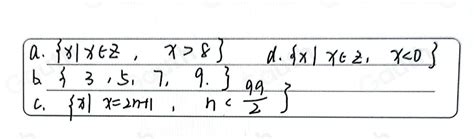 a. {x| x∈Z, x>8} d. {x| x∈Z, x<0}
b. { 3, 5, 7, 9. }
c. {x| x=2n+1, n< 99/2 }